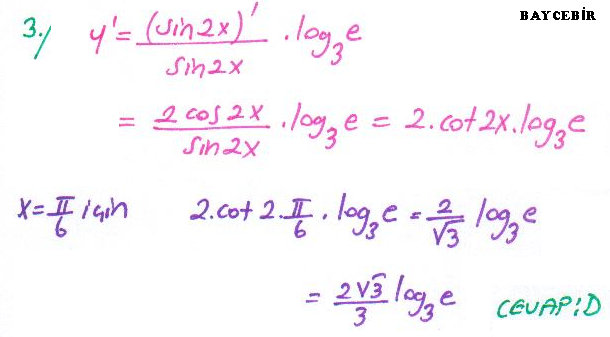 BAYCEBİR
3./ y' = (sin2x)' / sin2x . log₃e
= 2 cos2x / sin2x . log₃e = 2.cot2x.log₃e
x = π/6 için 2.cot 2.π/6 . log₃e = 2/√3 log₃e
= 2√3/3 log₃e CEVAP:D